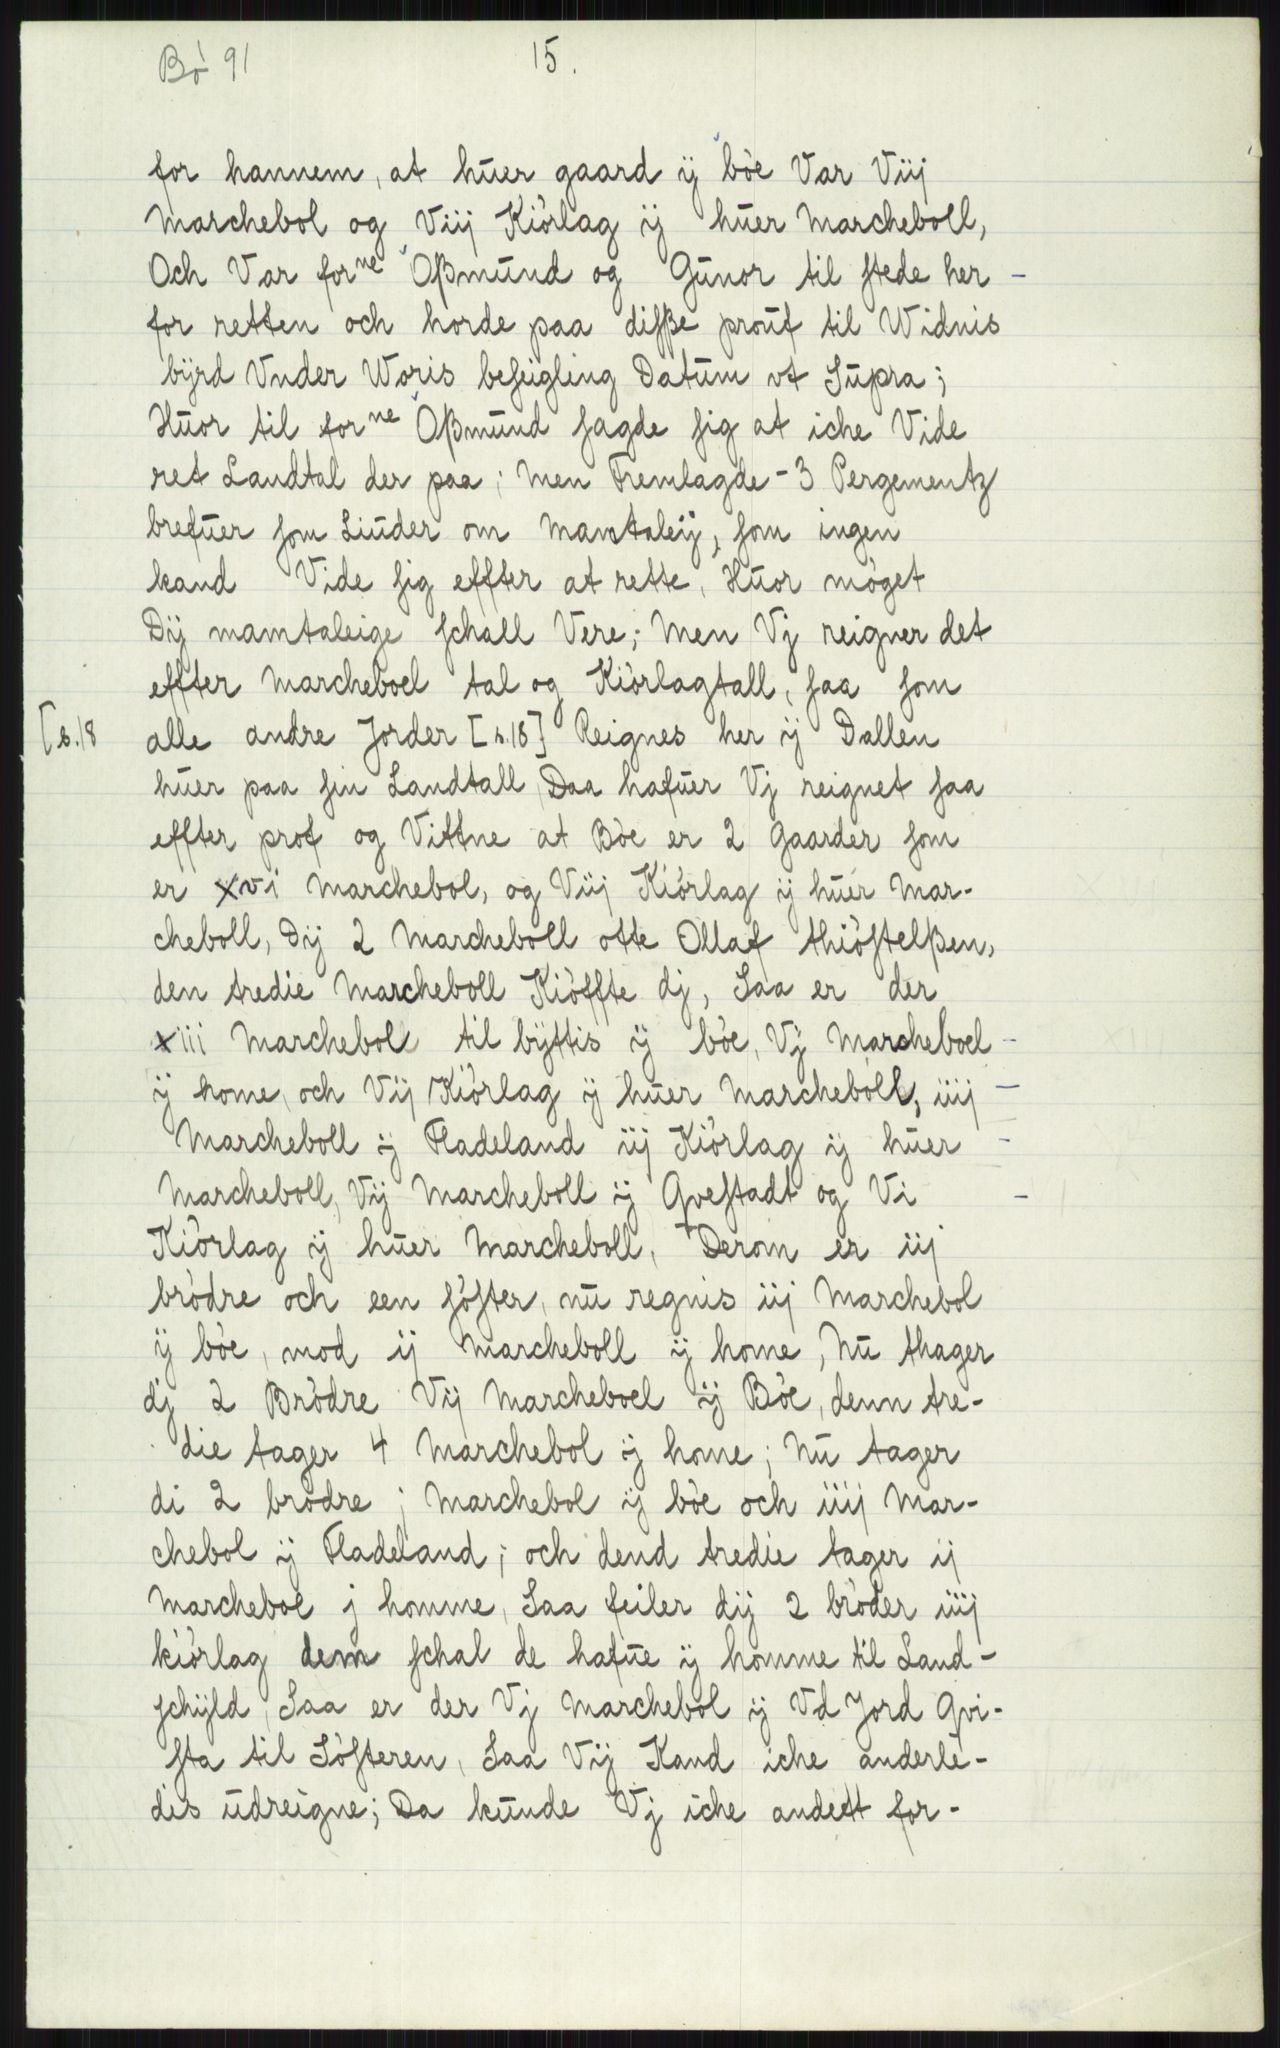 Bó 91 15.
for hannem, at huer gaard ÿ bóe Var Viij
Marchebol og Viij Kiórlag ÿ huer Marcheboll,
Och Var forne Oßmund og Gunor til stede her
for retten och horde paa disße prouf til Widnis
byrd Vnder Woris beseigling Datum vt Supra;
Huor til forne Oßmund sagde sig at iche Vide
ret Landtal der paa; Men Fremlagde - 3 Pergementz
brefuer som Liuder om Mamtaleÿ, som ingen
kand Vide sig effter at rette, Huor móget
Dÿ mamtaleige schall Vere; Men Vj reigner det
effter Marcheboel tal og Kiórlagtall, saa som
[s.18 alle andre Jorder [s.18] Reignes her ÿ Dallen
huer paa sin Landtall Daa hafuer Vj reignet saa
effter prof og Vittne at Bóe er 2 Gaarder som
er xvi Marchebol, og Viij Kiórlag ÿ huer Mar-
cheboll, Dÿ 2 Marcheboll otte Ollaf thióstelßen,
den tredie Marcheboll Kióffte dj, Saa er der
xiii Marchebol til bÿttis ÿ bóe, Vÿ Marcheboel
ÿ home, och Vij Kiórlag ÿ huer Marcheboll, iiij
Marcheboll ÿ Fladeland iij Kiórlag ÿ huer
Marcheboll, Vij Marcheboll ÿ Qvestadt og Vi
Kiórlag ÿ huer Marcheboll, Derom er iij
bródre och een sóster, nu regnis iij Marchebol
ÿ bóe, mod ij Marcheboll ÿ home, Nu thager
dj 2 Bródre Vij Marcheboel ÿ Bóe, denn tre-
die tager 4 Marchebol ÿ home; Nu tager
di 2 bródre j Marchebol ÿ bóe och iiij Mar-
chebol ÿ Fladeland; och dend tredie tager ij
Marcheboe j homme, Saa feiler dij 2 bróder iiij
kiórlag dem schal de hafue ÿ homme til Land-
schÿld, Saa er der Vj Marchebol ÿ Vd Jord Qvi-
sta til Sósteren, Saa Vij Kand iche anderle-
dis udreigne; Da kunde Vj iche andett for-